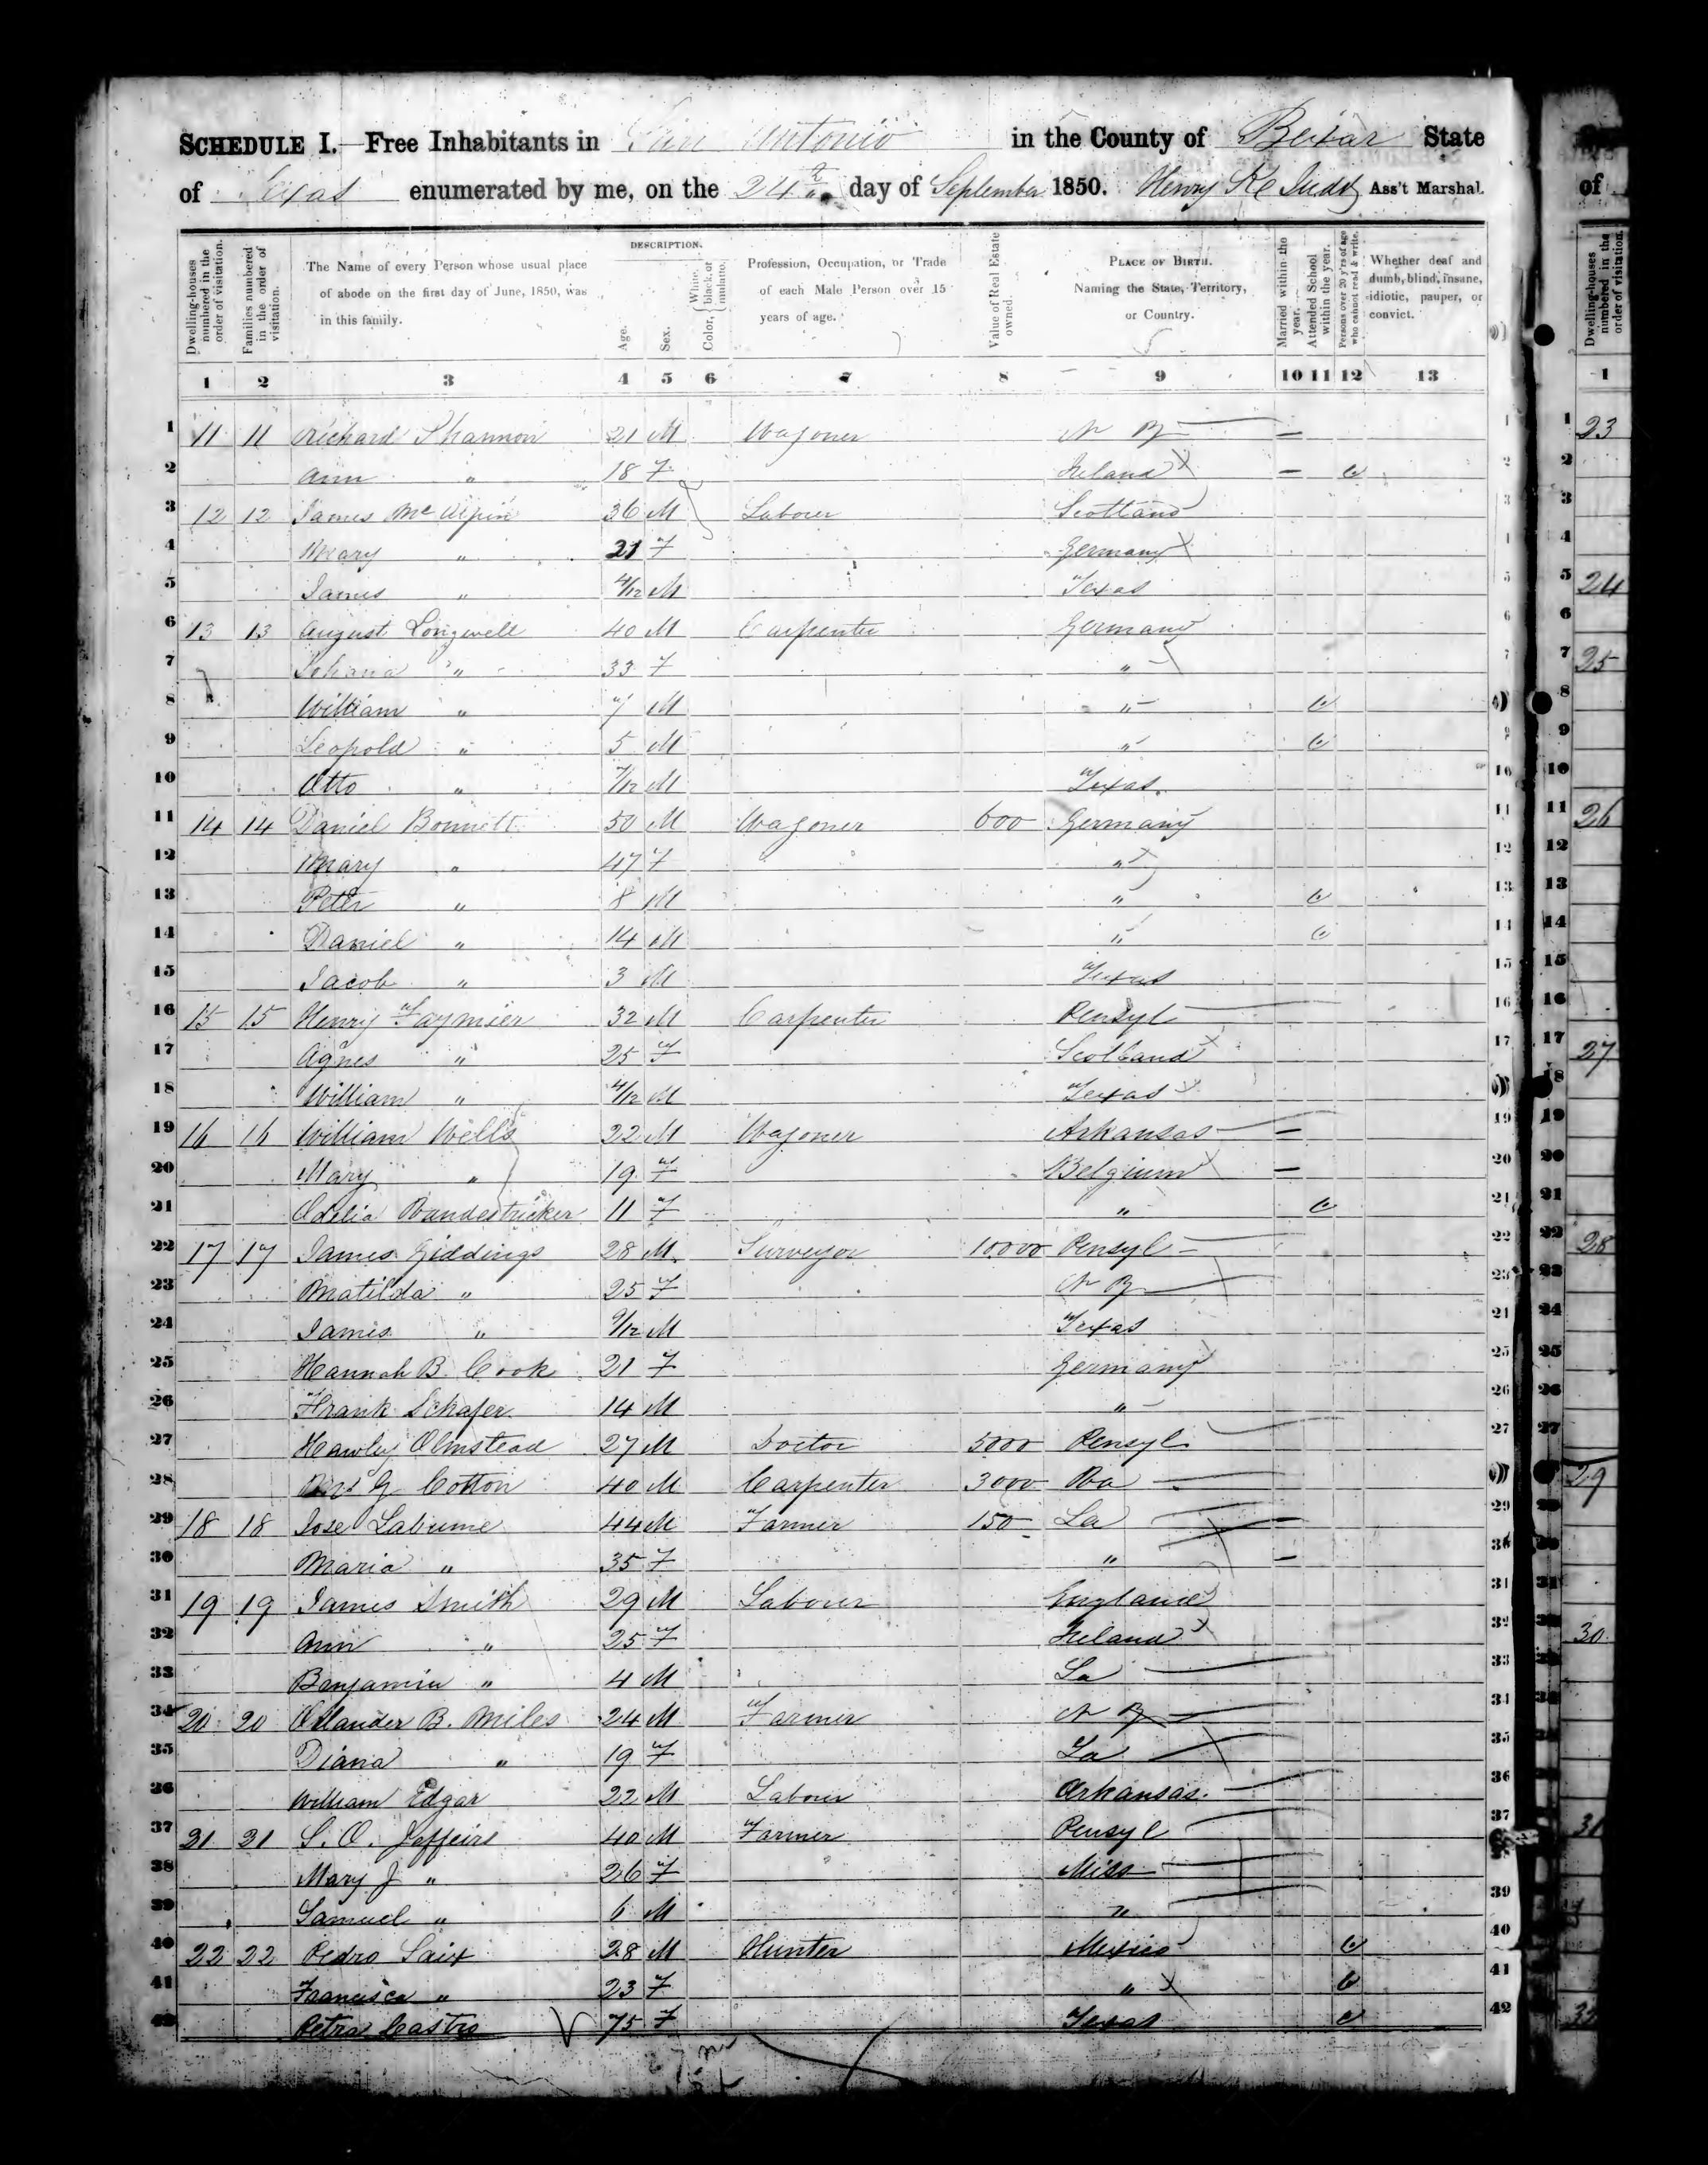 SCHEDULE I.—Free Inhabitants in San Antonio in the County of Bexar State
of Texas enumerated by me, on the 24th day of September 1850. Henry Ass't Marshal.
Dwelling-houses numbered in the order of visitation.
Families numbered in the order of visitation.
The Name of every Person whose usual place of abode on the first day of June, 1850, was in this family.
DESCRIPTION.
Age.
Sex.
Color, { White, black, or mulatto.
Profession, Occupation, or Trade of each Male Person over 15 years of age.
Value of Real Estate owned.
PLACE OF BIRTH. Naming the State, Territory, or Country.
Married within the year.
Attended School within the year.
Persons over 20 y'rs of age who cannot read & write.
Whether deaf and dumb, blind, insane, idiotic, pauper, or convict.
1 2 3 4 5 6 7 8 9 10 11 12 13
1 11 11 Richard Shannon 21 M Wagoner N Y — 1
2 Ann " 18 F Ireland — 2
3 12 12 James McAlpin 36 M Labourer Scotland 3
4 Mary " 21 F Germany 4
5 James " 4/12 M Texas 5
6 13 13 August Longwell 40 M Carpenter Germany 6
7 Johana " 33 F " 7
8 William " 7 M " 8
9 Leopold " 5 M " 9
10 Otto " 7/12 M Texas 10
11 14 14 Daniel Bonnett 50 M Wagoner 600 Germany 11
12 Mary " 47 F " 12
13 Peter " 8 M " 13
14 Daniel " 14 M " 14
15 Jacob " 3 M Texas 15
16 15 15 Henry 32 M Carpenter Pensyl 16
17 Agnes " 25 F Scotland 17
18 William " 4/12 M Texas 18
19 16 16 William Wells 22 M Wagoner Arkansas — 19
20 Mary " 19 F Belgium — 20
21 Odelia Vandestricker 11 F " 21
22 17 17 James Giddings 28 M Surveyor 10000 Pensyl 22
23 Matilda " 25 F N Y 23
24 James " 9/12 M Texas 24
25 Hannah B. Cook 21 F Germany 25
26 Frank Schafer 14 M " 26
27 Hawley Olmstead 27 M Doctor 5000 Pensyl 27
28 G Cotton 40 M Carpenter 3000 Va 28
29 18 18 Jose Labume 44 M Farmer 150 La — 29
30 Maria " 35 F " — 30
31 19 19 James Smith 29 M Labourer England 31
32 Ann " 25 F Ireland 32
33 Benjamin " 4 M La 33
34 20 20 Orlander B. Miles 24 M Farmer N Y 34
35 Diana " 19 F La 35
36 William Edgar 22 M Labourer Arkansas. 36
37 21 21 S. O. Jaffeirs 40 M Farmer Pensyl 37
38 Mary J " 26 F Miss 38
39 Samuel " 6 M " 39
40 22 22 Pedro Saix 28 M Hunter Mexico 40
41 Francisca " 23 F " 41
42 Petra Castro 75 F Texas 42
of
Dwelling-houses numbered in the order of visitation.
1
1 23
2
3
4
5 24
6
7 25
8
9
10
11 26
12
13
14
15
16
17 27
18
19
20
21
22 28
23
24
25
26
27
29
30
31
32